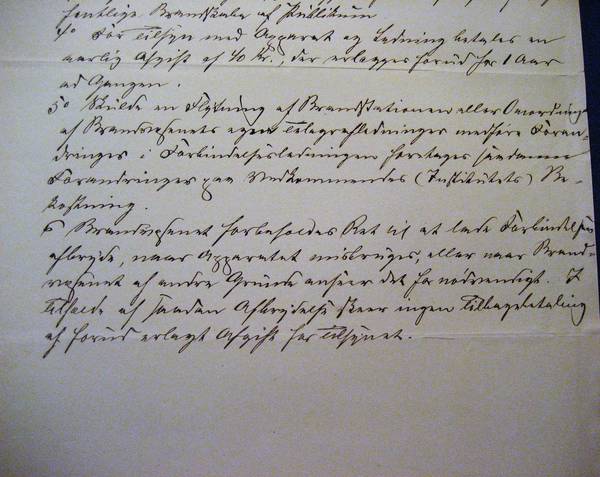 fentlige Brandskabe af Publikum
4° For Tilsyn med Apparat og Ledning betales en
aarlig Afgift af 40 Kr., der erlægges forud for 1 Aar
ad Gangen.
5° Skulde en Flytning af Brandstationen eller Omordning
af Brandvæsenets egen Telegrafledninger medføre Foran-
dringer i Forbindelsesledningen foretages saadanne
Forandringer paa Vedkommendes (Instituttets) Be-
kostning.
6 Brandvæsenet forbeholdes Ret til at lade Forbindelsen
afbryde, naar Apparatet misbruges, eller naar Brand-
væsenet af andre Grunde anseer det for nødvendigt. I
Tilfælde af saadan Afbrydelse skeer ingen Tilbagebetaling
af forud erlagt Afgift for Tilsynet.